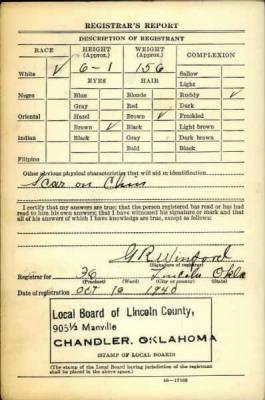 REGISTRAR'S REPORT
DESCRIPTION OF REGISTRANT
RACE HEIGHT (Approx.) WEIGHT (Approx.) COMPLEXION
White ✓ 6-1 156 Sallow
EYES HAIR Light
Negro Blue Blonde Ruddy ✓
Gray Red Dark
Oriental Hazel Brown ✓ Freckled
Brown ✓ Black Light brown
Indian Black Gray Dark brown
Bald Black
Filipino
Other obvious physical characteristics that will aid in identification
Scar on Chin
I certify that my answers are true; that the person registered has read or has had
read to him his own answers; that I have witnessed his signature or mark and that
all of his answers of which I have knowledge are true, except as follows:
G R Winford
(Signature of registrar)
Registrar for 26 Lincoln Okla
(Precinct) (Ward) (City or county) (State)
Date of registration Oct 16 1940
Local Board of Lincoln County,
905½ Manville
CHANDLER, OKLAHOMA
(STAMP OF LOCAL BOARD)
(The stamp of the Local Board having jurisdiction of the registrant
shall be placed in the above space.)